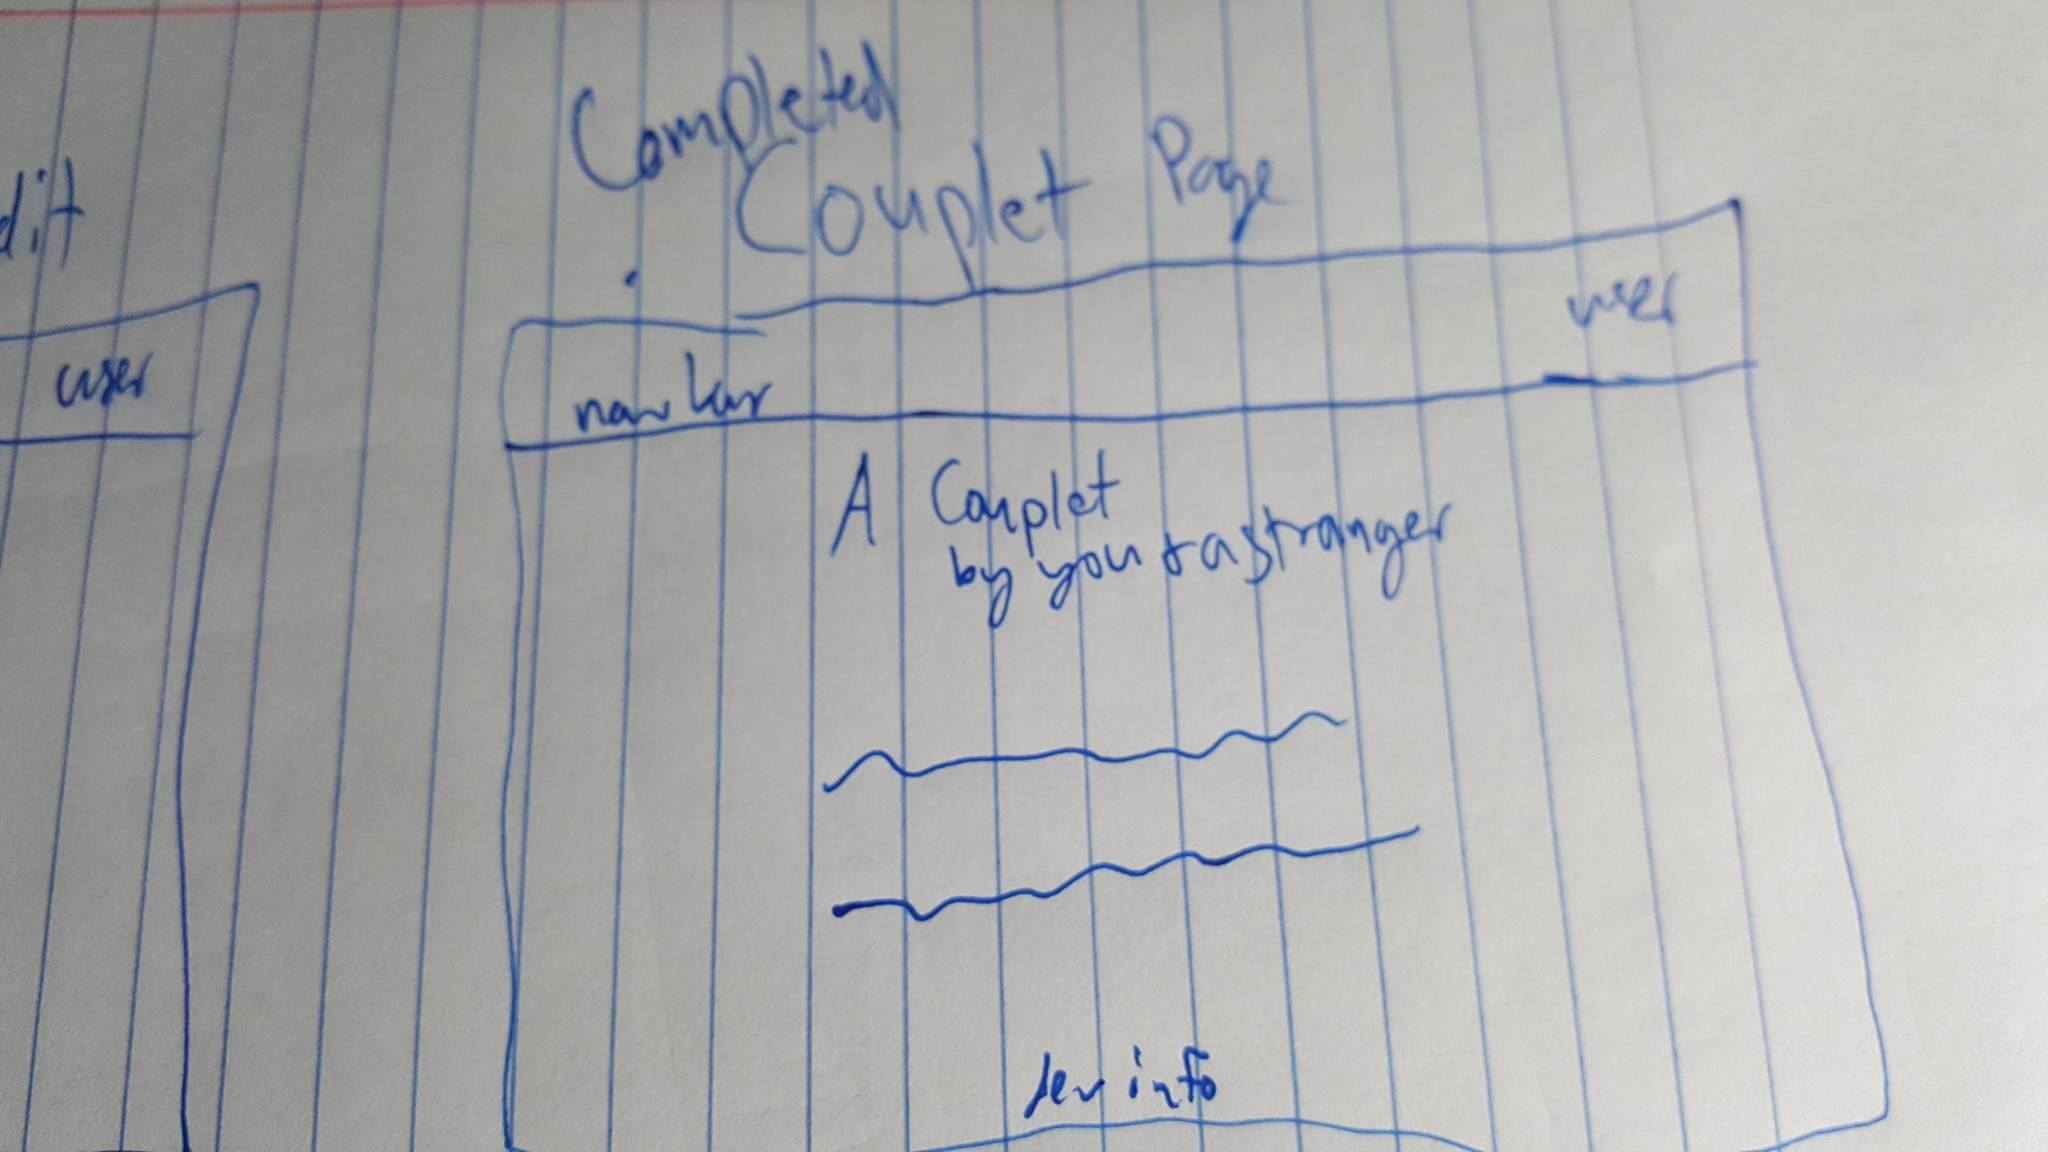 dit
user
Completed
Couplet Page
user
nav bar
A Couplet
by you + a stranger
dev info